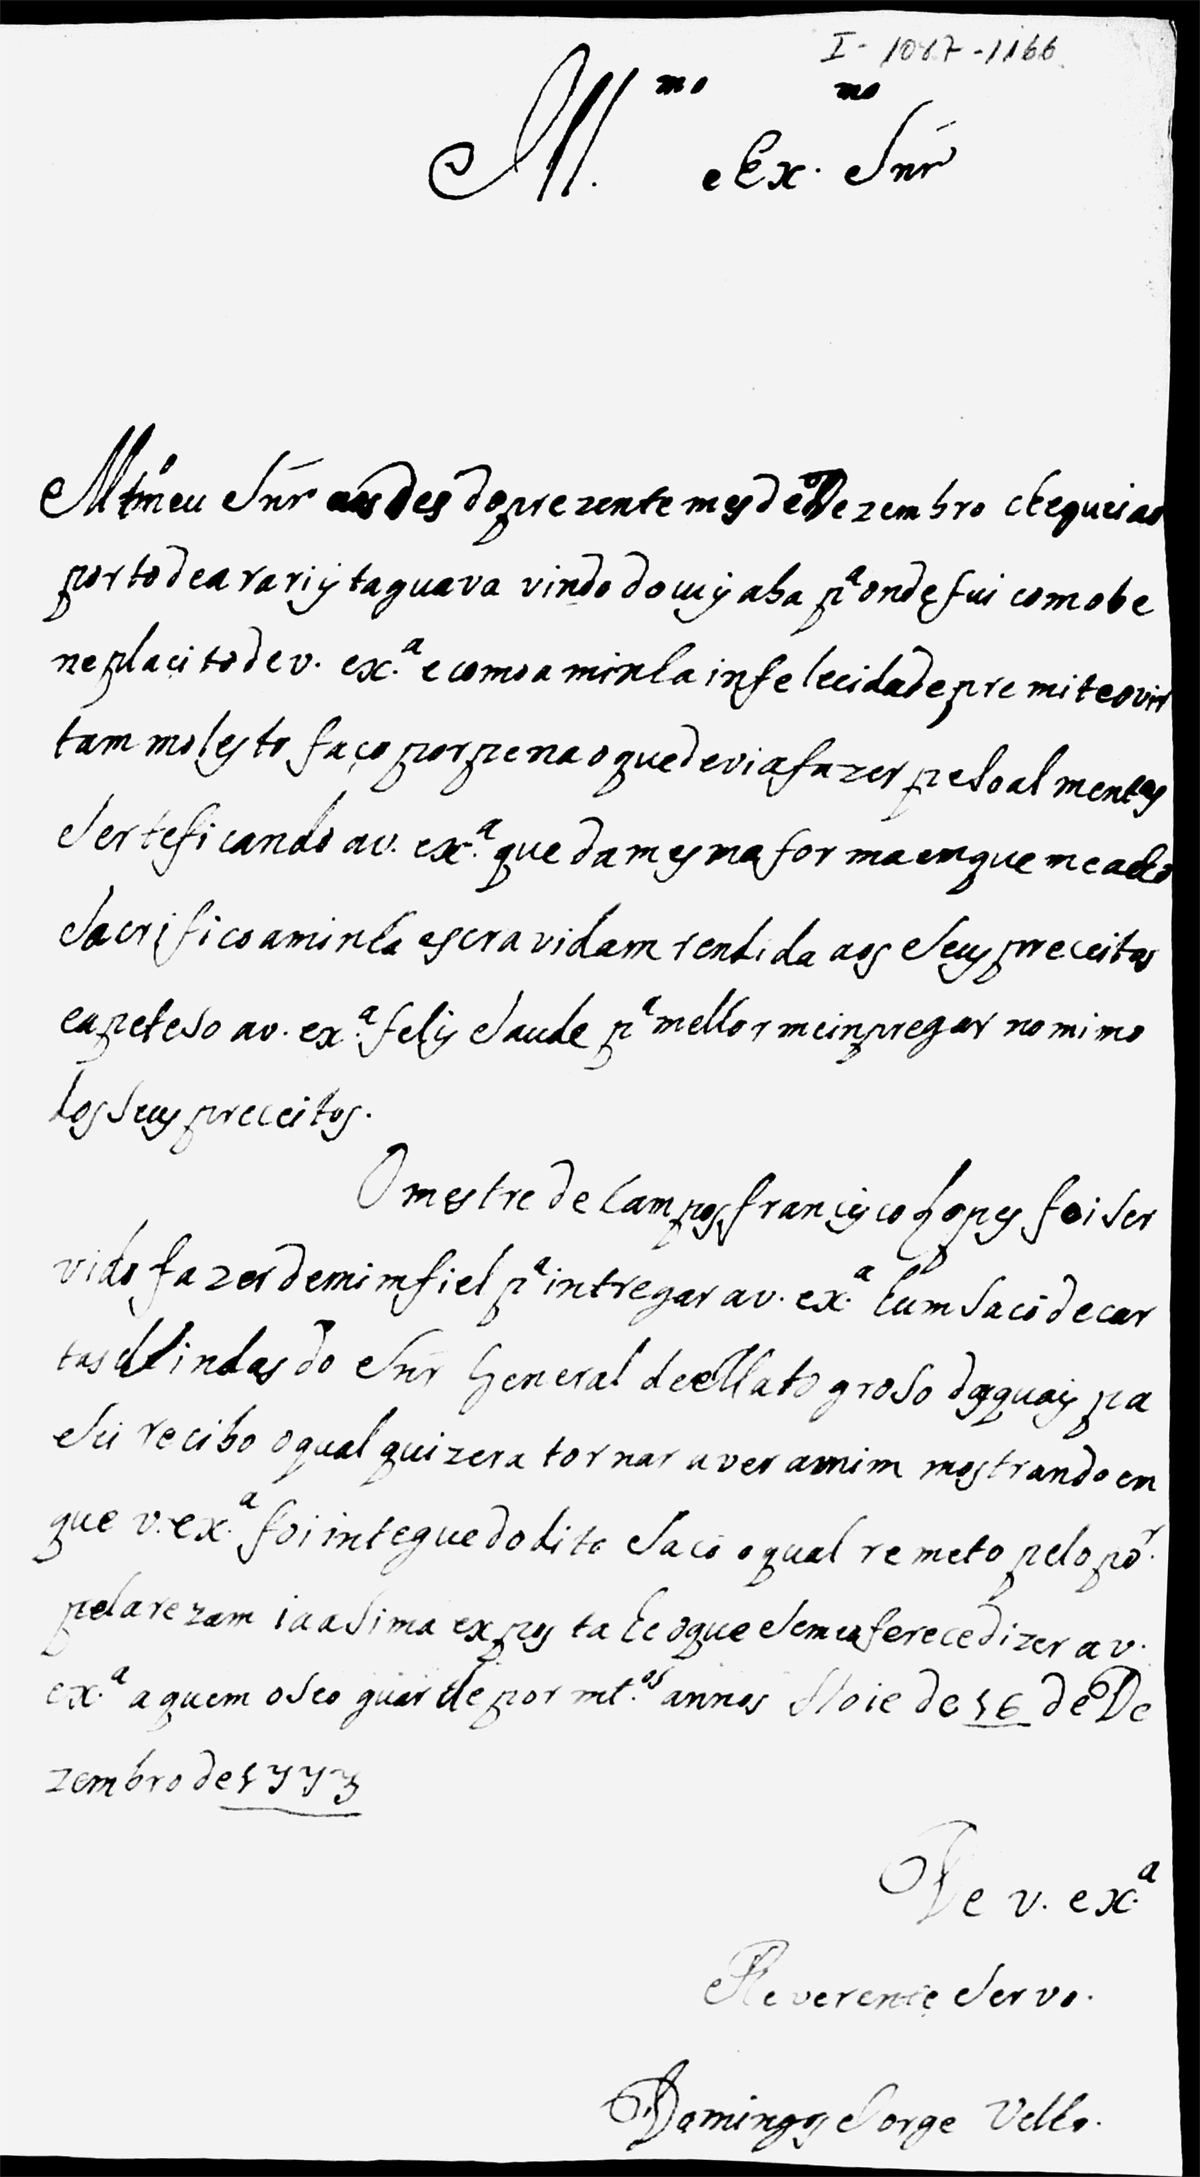 I-1087-1166
Ill.mo e Ex.mo Snr̃
Mt.º meu Snr̃ aos des do prezente mes de Dezembro cheguei ao
porto de arariytaguava vindo do cuyaba p.ª onde fui com obe
neplacito de v. ex.ª e como a minha infelecidade premite o vir
tam molesto faço por pena o que devia fazer pesoalmente
Serteficando a v. ex.ª que da mesma forma em que me acho
Sacrifico a minha escravidam rendida aos Seus preceitos
e apeteso a v. ex.ª felis Saude p.ª melhor me inpregar no mimo
dos Seus preceitos.
O mestre de Campos francisco Lopes foi Ser
vido fazer de mim fiel p.ª intregar a v. ex.ª hum Saco de car
tas vindas do Snr̃ General de Mato groso das quais pa
Sei recibo o qual quizera tornar a ver a mim mostrando en
que v. ex.ª foi integue do dito Saco o qual remeto pelo por
pela rezam ia asima exposta he o que Se me oferece dizer a v.
ex.ª a quem o Seo guarde por mt.os annos Hoie de 16 de De
zembro de 1773
De v. ex.ª
Reverente Servo.
Domingos Jorge Velho.